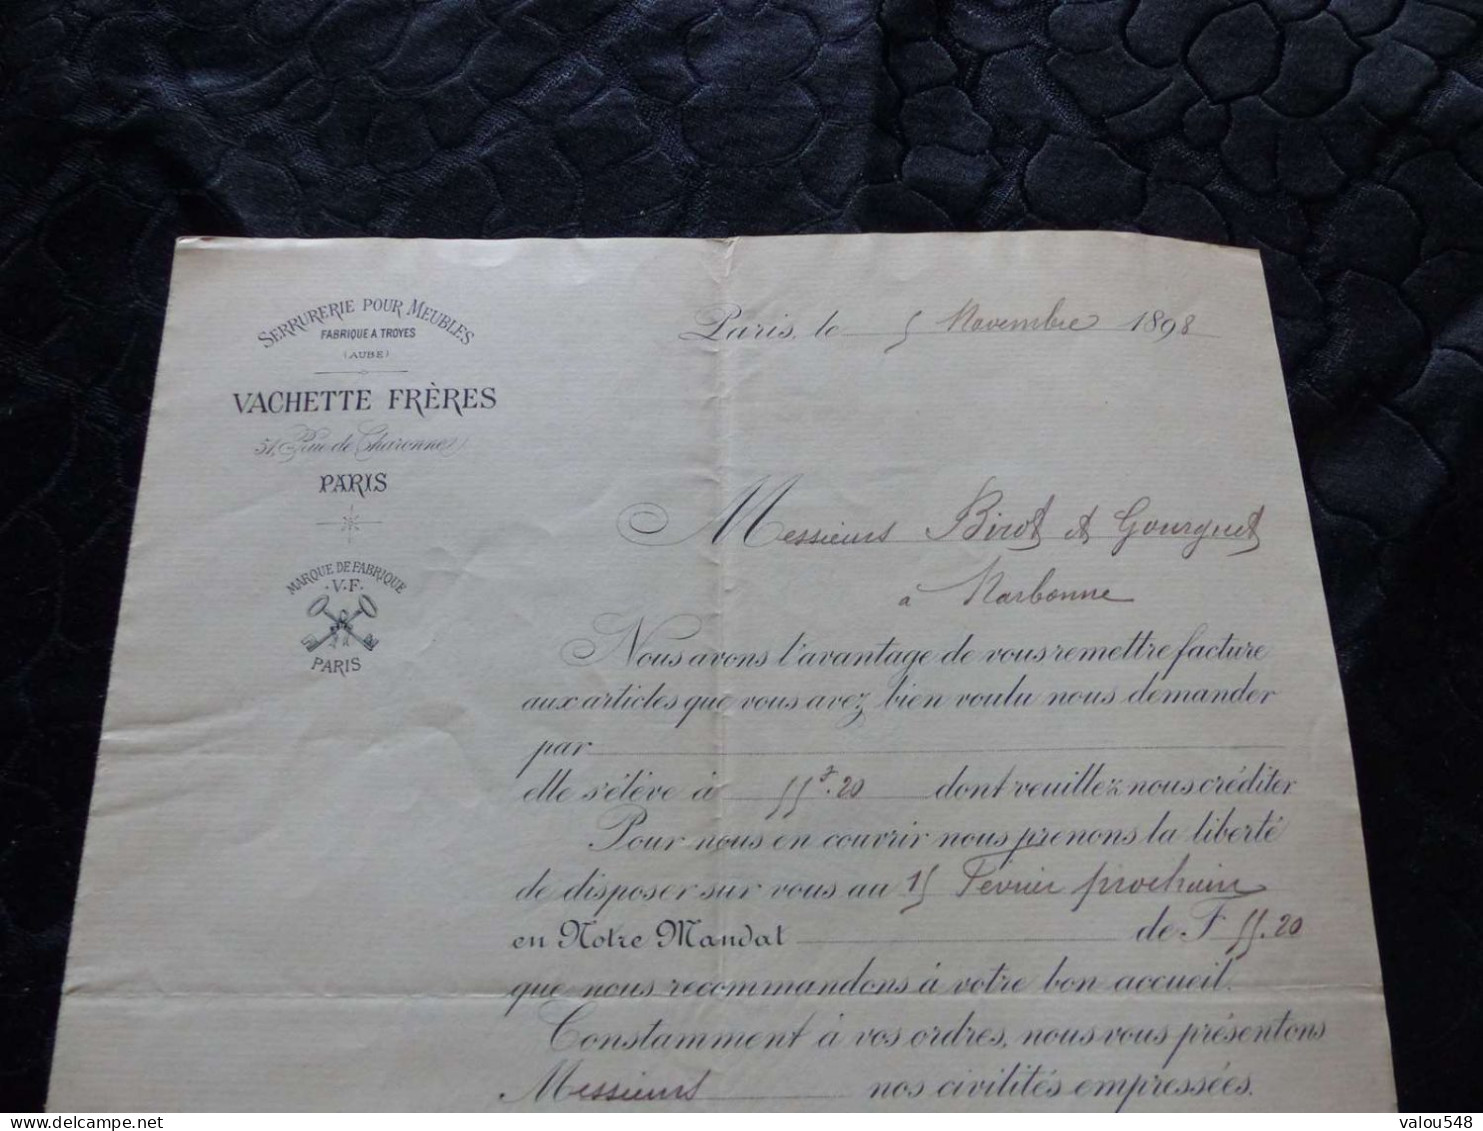 SERRURERIE POUR MEUBLES
FABRIQUE A TROYES
(AUBE)
VACHETTE FRÈRES
51, Rue de Charonne
PARIS
MARQUE DE FABRIQUE
V.F.
PARIS
Paris, le 5 Novembre 1898
Messieurs Birot et Gourguet
a Narbonne
Nous avons l'avantage de vous remettre facture
aux articles que vous avez bien voulu nous demander
par
elle s'élève à 55f.20 dont veuillez nous créditer
Pour nous en couvrir nous prenons la liberté
de disposer sur vous au 15 Février prochain
en Notre Mandat de F 55.20
que nous recommandons à votre bon accueil.
Constamment à vos ordres, nous vous présentons
Messieurs nos civilités empressées.
delcampe.net
valou548